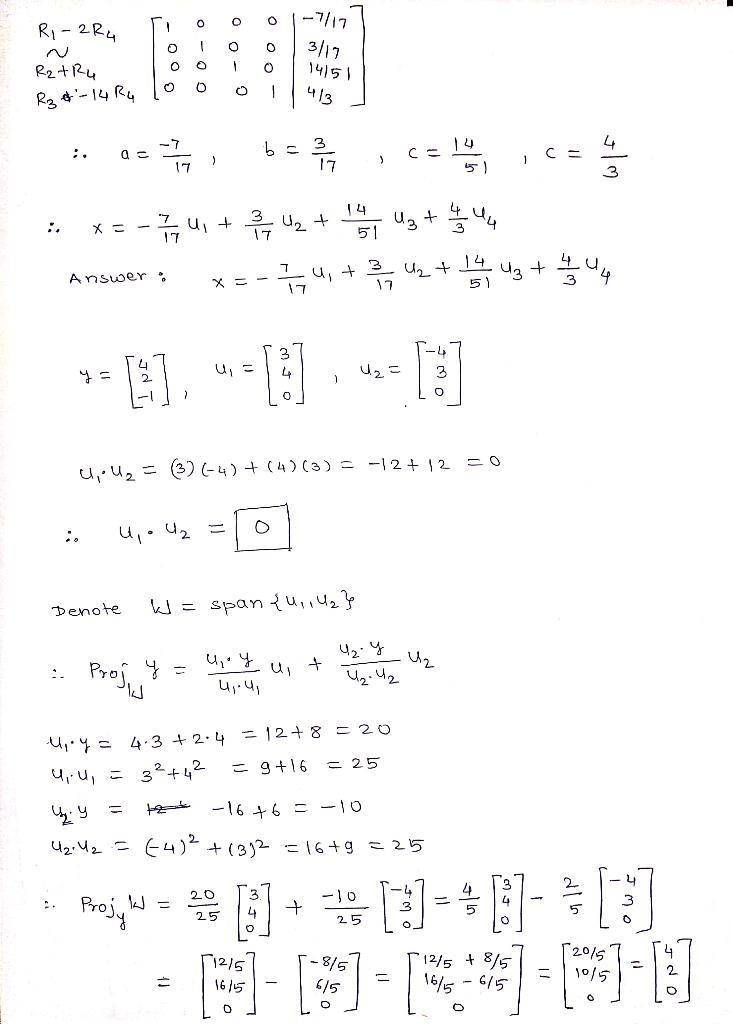 R₁ - 2R₄
~
R₂ + R₄
R₃ - 14R₄
[1 0 0 0 | -7/17]
[0 1 0 0 | 3/17]
[0 0 1 0 | 14/51]
[0 0 0 1 | 4/3]
∴ a = -7/17 , b = 3/17 , c = 14/51 , c = 4/3
∴ x = - 7/17 u₁ + 3/17 u₂ + 14/51 u₃ + 4/3 u₄
Answer : x = - 7/17 u₁ + 3/17 u₂ + 14/51 u₃ + 4/3 u₄
y = [4 2 -1] , u₁ = [3 4 0] , u₂ = [-4 3 0]
u₁·u₂ = (3)(-4) + (4)(3) = -12 + 12 = 0
∴ u₁·u₂ = 0
Denote W = span {u₁, u₂}
∴ Proj_W y = (u₁·y)/(u₁·u₁) u₁ + (u₂·y)/(u₂·u₂) u₂
u₁·y = 4·3 + 2·4 = 12 + 8 = 20
u₁·u₁ = 3² + 4² = 9 + 16 = 25
u₂·y = -16 + 6 = -10
u₂·u₂ = (-4)² + (3)² = 16 + 9 = 25
∴ Proj_y W = 20/25 [3 4 0] + -10/25 [-4 3 0] = 4/5 [3 4 0] - 2/5 [-4 3 0]
= [12/5 16/5 0] - [-8/5 6/5 0] = [12/5 + 8/5 16/5 - 6/5 0] = [20/5 10/5 0] = [4 2 0]